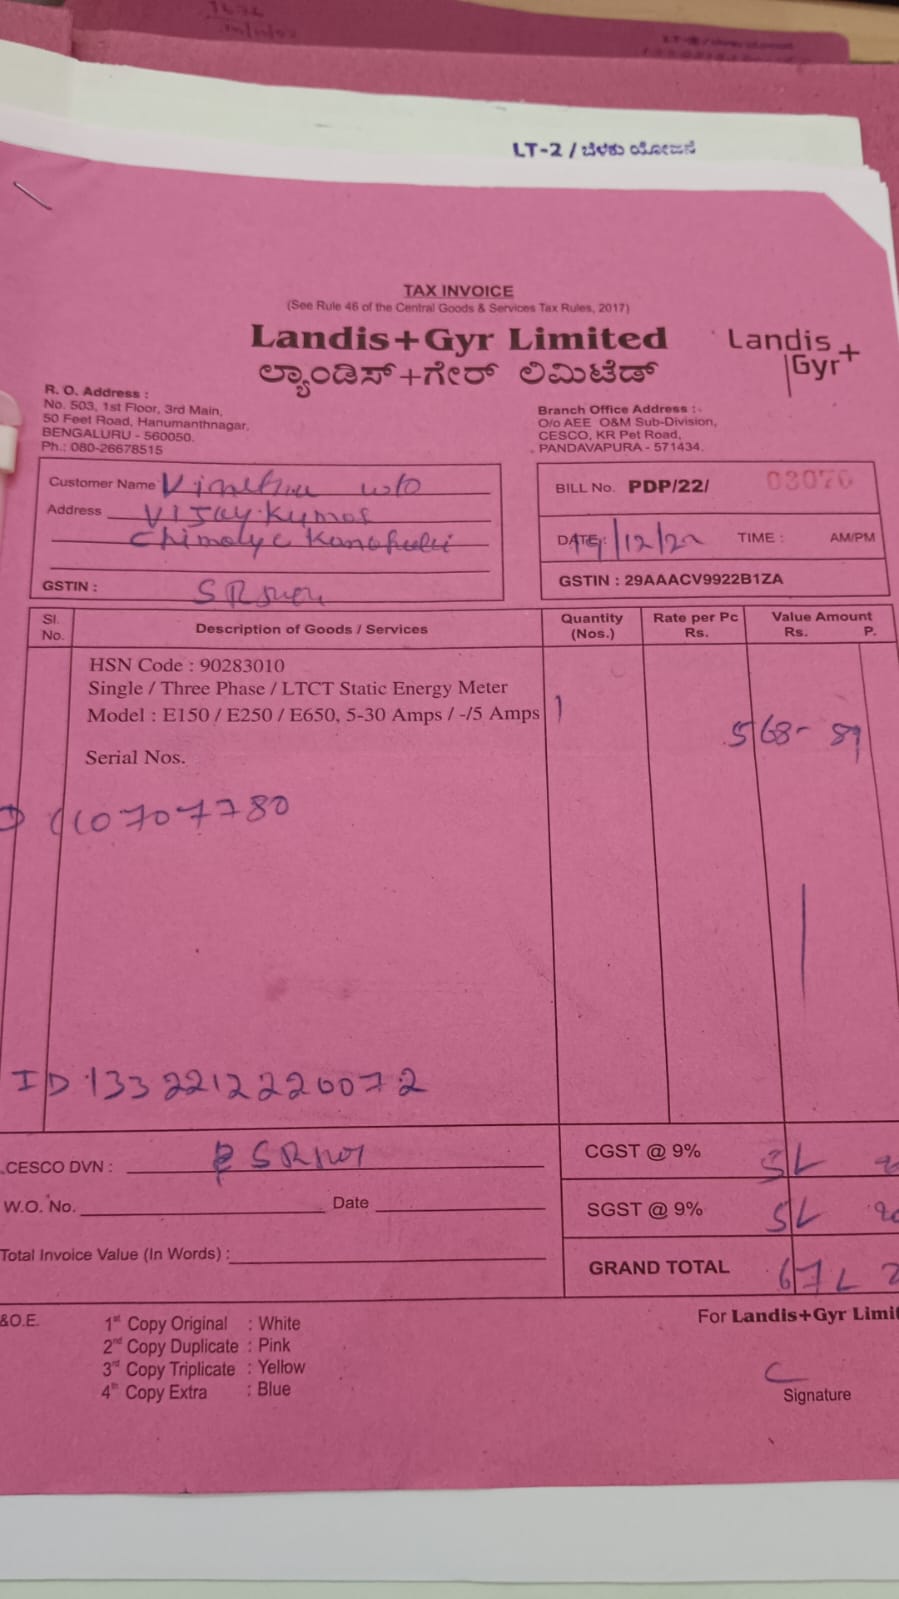 LT-2 / ಬೆಳಕು ಯೋಜನೆ
TAX INVOICE
(See Rule 46 of the Central Goods & Services Tax Rules, 2017)
Landis+Gyr Limited
ಲ್ಯಾಂಡಿಸ್+ಗೇರ್ ಲಿಮಿಟೆಡ್
Landis+
Gyr
R. O. Address :
No. 503, 1st Floor, 3rd Main,
50 Feet Road, Hanumanthnagar,
BENGALURU - 560050.
Ph.: 080-26678515
Branch Office Address :-
O/o AEE O&M Sub-Division,
CESCO, KR Pet Road,
PANDAVAPURA - 571434.
Customer Name w/o
Address Vijay Kumar
GSTIN :
BILL No. PDP/22/ 03076
DATE : /12/22 TIME : AM/PM
GSTIN : 29AAACV9922B1ZA
Sl. No. Description of Goods / Services Quantity (Nos.) Rate per Pc Rs. Value Amount Rs. P.
HSN Code : 90283010
Single / Three Phase / LTCT Static Energy Meter
Model : E150 / E250 / E650, 5-30 Amps / -/5 Amps 1
568-89
Serial Nos.
10707780
ID 1332212220072
CESCO DVN :
CGST @ 9%
W.O. No. Date
SGST @ 9%
Total Invoice Value (In Words) :
GRAND TOTAL
&O.E.
1st Copy Original : White
2nd Copy Duplicate : Pink
3rd Copy Triplicate : Yellow
4th Copy Extra : Blue
For Landis+Gyr Limit
Signature